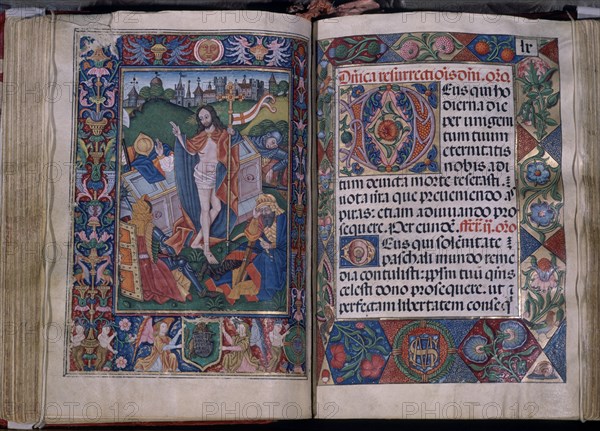 lx
Dn̄ica resurrectiōis dn̄i. oro
Deus qui ho
dierna die
per unigeni
tum tuum
eternitatis
nobis. adi
tum devicta morte reserasti.
vota n̄ra que preueniendo as
piras: etiam adiuuando pro
sequere. Per eundē. ferīa .ij. oro
Deus qui solēnitate
paschali mundo reme
dia contulisti: pp̄lm tuū q̄s
celesti dono prosequere. ut
perfectam libertatem conseq̄
PHOTO12